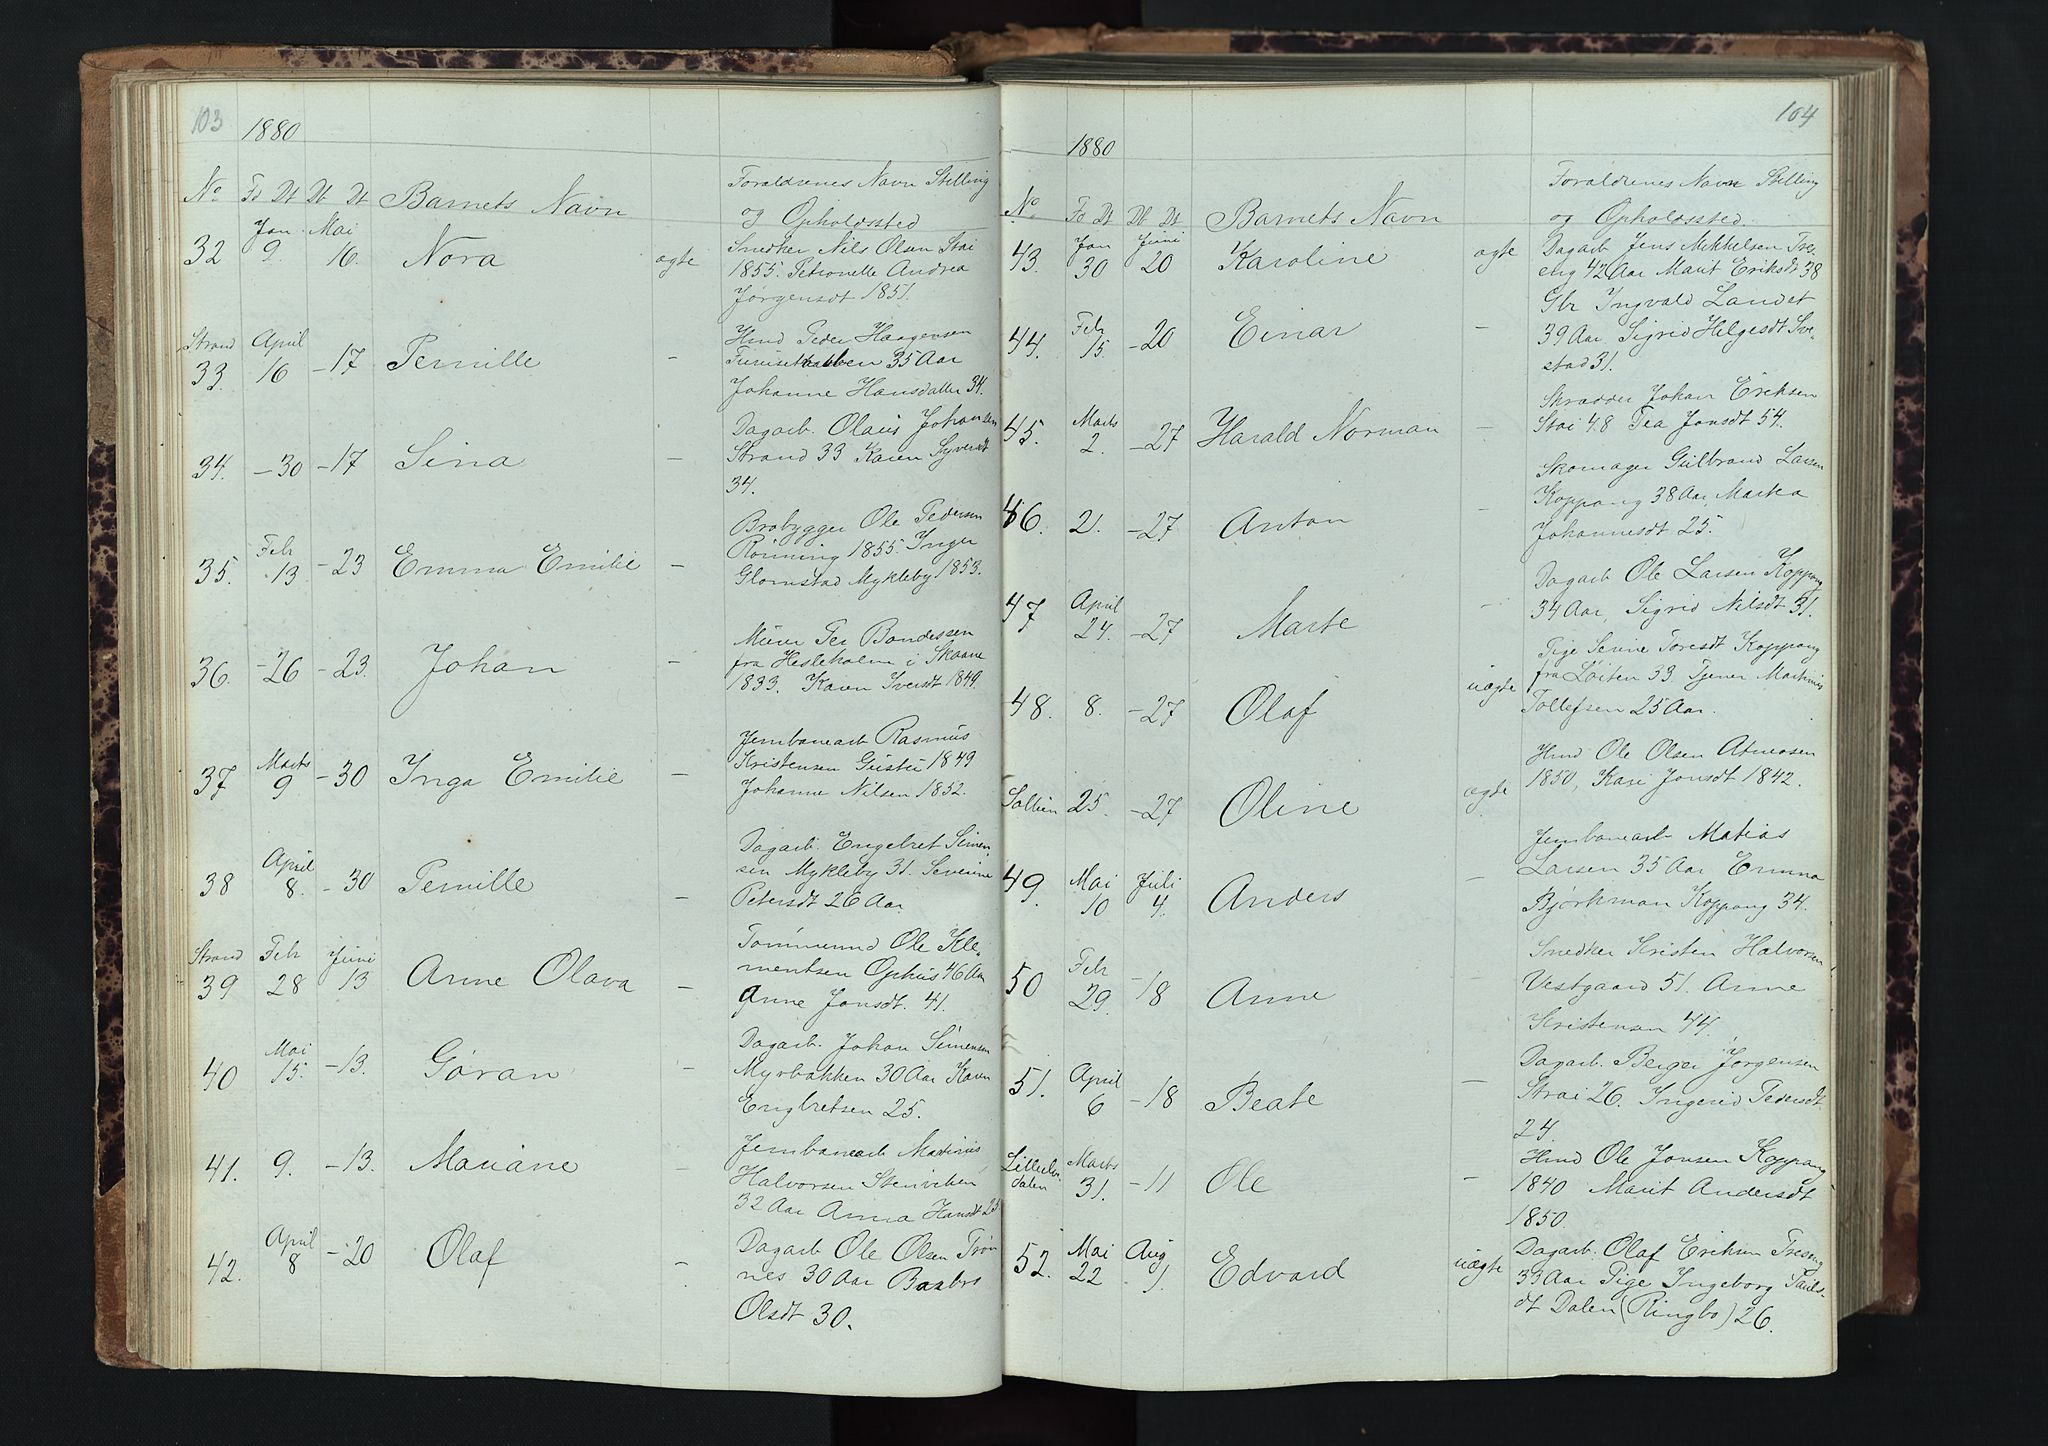 103
1880
No Fd Dt Db Dt Barnets Navn
Forældrenes Navn Stilling
og Opholdssted
Jan Mai
32 9. 16. Nora ægte
Snedker Nils Olsen Stai
1855. Petronelle Andrea
Jørgensdt 1851.
Strand April
33. 16 -17 Pernille -
Hmd Peder Haagensen
35 Aar
Johanne Hansdatter 34.
34. -30 -17 Sina -
Dagarb. Olaus Johansen
Strand 33 Karen Syversdt
34.
Feb
35. 13 -23 Emma Emilie -
Brobygger Ole Pedersen
Rønning 1855. Inger
Glomstad Mykleby 1853.
36. -26 -23. Johan -
Murer Per Bondessen
fra Hesleholm i Skaane
1833. Karen Iversdt 1849.
Marts
37 9 -30 Inga Emilie -
Jernbanearb Rasmus
Kristensen 1849
Johanne Nilsen 1852.
April
38 8. -30 Pernille -
Dagarb. Engebret Simen-
sen Mykleby 31. Severine
Petersdt 26 Aar.
Strand Feb Juni
39 28 13 Anne Olava -
Tømmermd Ole Kle-
mentsen Ophus 46 Aar
Anne Jonsdt. 41.
Mai
40 15. -13. Gøran -
Dagarb. Johan Simensen
Myrbakken 30 Aar Karen
Engbretsen 25.
41. 9. -13. Mariane -
Jernbanearb Martinus
Halvorsen Stenviken
32 Aar Anna Hansdt 25
April
42. 8 -20 Olaf -
Dagarb Ole Olsen Trøn
nes 30 Aar Barbro
Olsdt 30.
104
1880
No Fd Dt Db Dt Barnets Navn
Forældrenes Navn Stilling
og Opholdssted.
Jan Juni
43. 30 20 Karoline ægte
Dagarb Jens Mikkelsen Tres-
eng 42 Aar Marit Eriksdt 38
Feb
44. 15. -20 Einar -
Gbr Ingvald Landet
39 Aar Sigrid Helgesdt Sve-
stad 31.
Marts
45. 2. -27 Harald Norman -
Skrædder Johan Eriksen
Stai 48 Pea Jonsdt 54.
46. 21. -27 Anton -
Skomager Gulbrand Larsen
Koppang 38 Aar, Marta
Johannesdt 25.
April
47 24. -27 Marte -
Dagarb Ole Larsen Koppang
34 Aar, Sigrid Nilsdt 31.
48. 8. -27 Olaf uægte
Pige Toresdt Koppang
fra Løiten 33. Tjener Martinus
Tollefsen 25 Aar.
Sollien 25 -27 Oline ægte
Hmd Ole Olsen Atneosen
1850, Kari Jonsdt 1842.
Mai Juli
49. 10 4. Anders -
Jernbanearb Matias
Larsen 35 Aar Emma
Bjørkman Koppang 34.
Feb
50 29. -18 Anne -
Snedker Kristen Halvorsen
Vestgaard 51. Anne
Kristensen 44.
April
51. 6 -18 Beate -
Dagarb. Berger Jørgensen
Strai 26. Ingerid Pedersdt
24.
Lilleelv- Marts
dalen 31. -11 Ole -
Hmd Ole Jonsen Koppang
1840 Marit Andersdt
1850.
Mai Aug
52. 22 1. Edvard uægte
Dagarb. Olaf Eriksen Treseng
33 Aar Pige Ingeborg Pauls-
dt Dalen (Ringbo) 26.